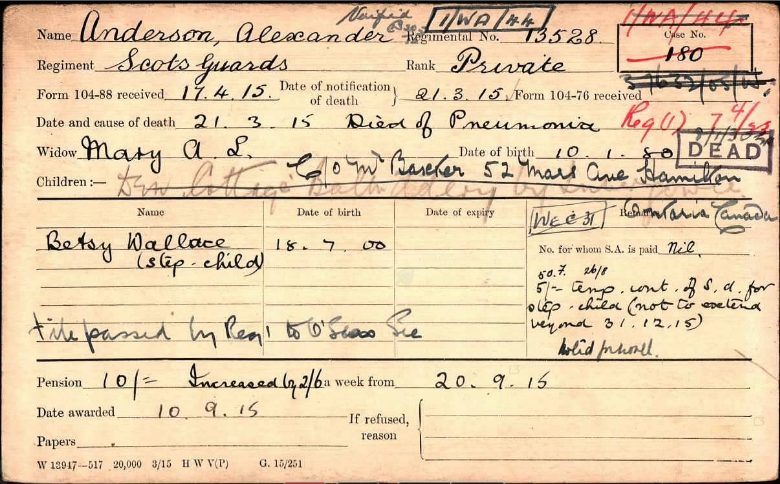 Verified 1/WA/44 1/WA/44
Name Anderson, Alexander Regimental No. 13528 Case No. 180
Regiment Scots Guards Rank Private
Form 104-88 received 17.4.15. Date of notification of death } 21.3.15. Form 104-76 received
Date and cause of death 21. 3. 15 Died of Pneumonia Reg(1) 7
Widow Mary A. L. Date of birth 10.1.80 DEAD
C/o Mr Barker 52 Mars Ave Hamilton
Children:— Dew Cottage
Ontario Canada
Name Date of birth Date of expiry Remarks
Betsy Wallace 18. 7. 00
(step-child)
No. for whom S.A. is paid Nil.
50.7. 26/8
5/- temp. cont. of S. d. for
step-child (not to extend
beyond 31.12.15)
File passed by Reg 1 to O'Seas Sec
Pension 10/= Increased by 2/6 a week from 20. 9. 15
Date awarded 10. 9. 15
If refused, reason
Papers .
W 13947—517 20,000 3/15 H W V(P) G. 15/251